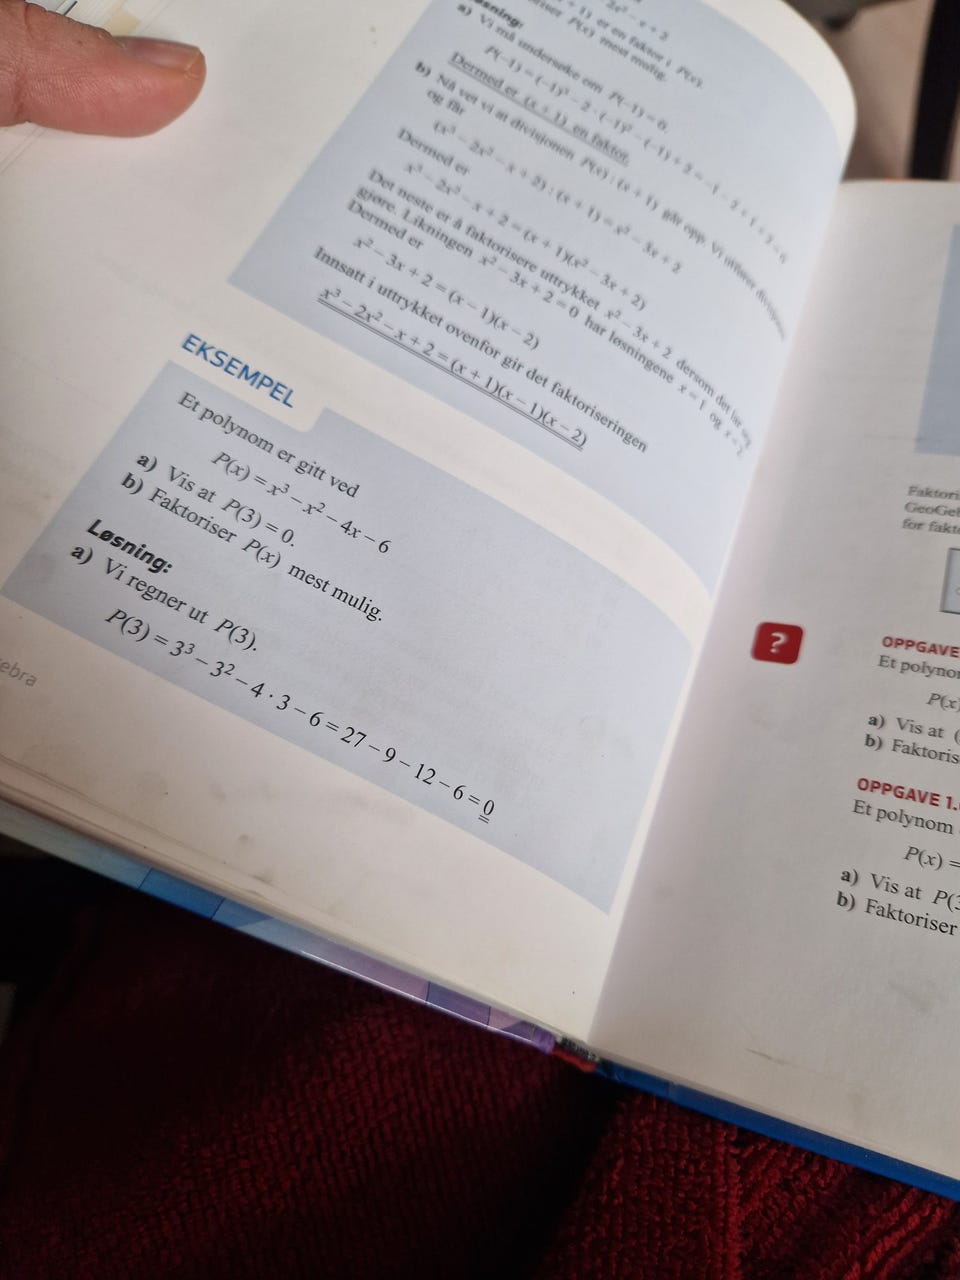 2x² – x + 2
+ 1) er en faktor i P(x).
P(x) mest mulig.
Løsning:
a) Vi må undersøke om P(–1) = 0.
P(–1) = (–1)³ – 2 · (–1)² – (–1) + 2 = –1 – 2 + 1 + 2 = 0
Dermed er (x + 1) en faktor.
b) Nå vet vi at divisjonen P(x) : (x + 1) går opp. Vi utfører divisjonen
og får
(x³ – 2x² – x + 2) : (x + 1) = x² – 3x + 2
Dermed er
x³ – 2x² – x + 2 = (x + 1)(x² – 3x + 2)
Det neste er å faktorisere uttrykket x² – 3x + 2 dersom det lar seg
gjøre. Likningen x² – 3x + 2 = 0 har løsningene x = 1 og x = 2.
Dermed er
x² – 3x + 2 = (x – 1)(x – 2)
Innsatt i uttrykket ovenfor gir det faktoriseringen
x³ – 2x² – x + 2 = (x + 1)(x – 1)(x – 2)
EKSEMPEL
Et polynom er gitt ved
P(x) = x³ – x² – 4x – 6
a) Vis at P(3) = 0.
b) Faktoriser P(x) mest mulig.
Løsning:
a) Vi regner ut P(3).
P(3) = 3³ – 3² – 4 · 3 – 6 = 27 – 9 – 12 – 6 = 0
ebra
Faktori
GeoGeb
for fakto
?
OPPGAVE
Et polynom
P(x)
a) Vis at (
b) Faktoris
OPPGAVE 1.
Et polynom
P(x) =
a) Vis at P(3
b) Faktoriser